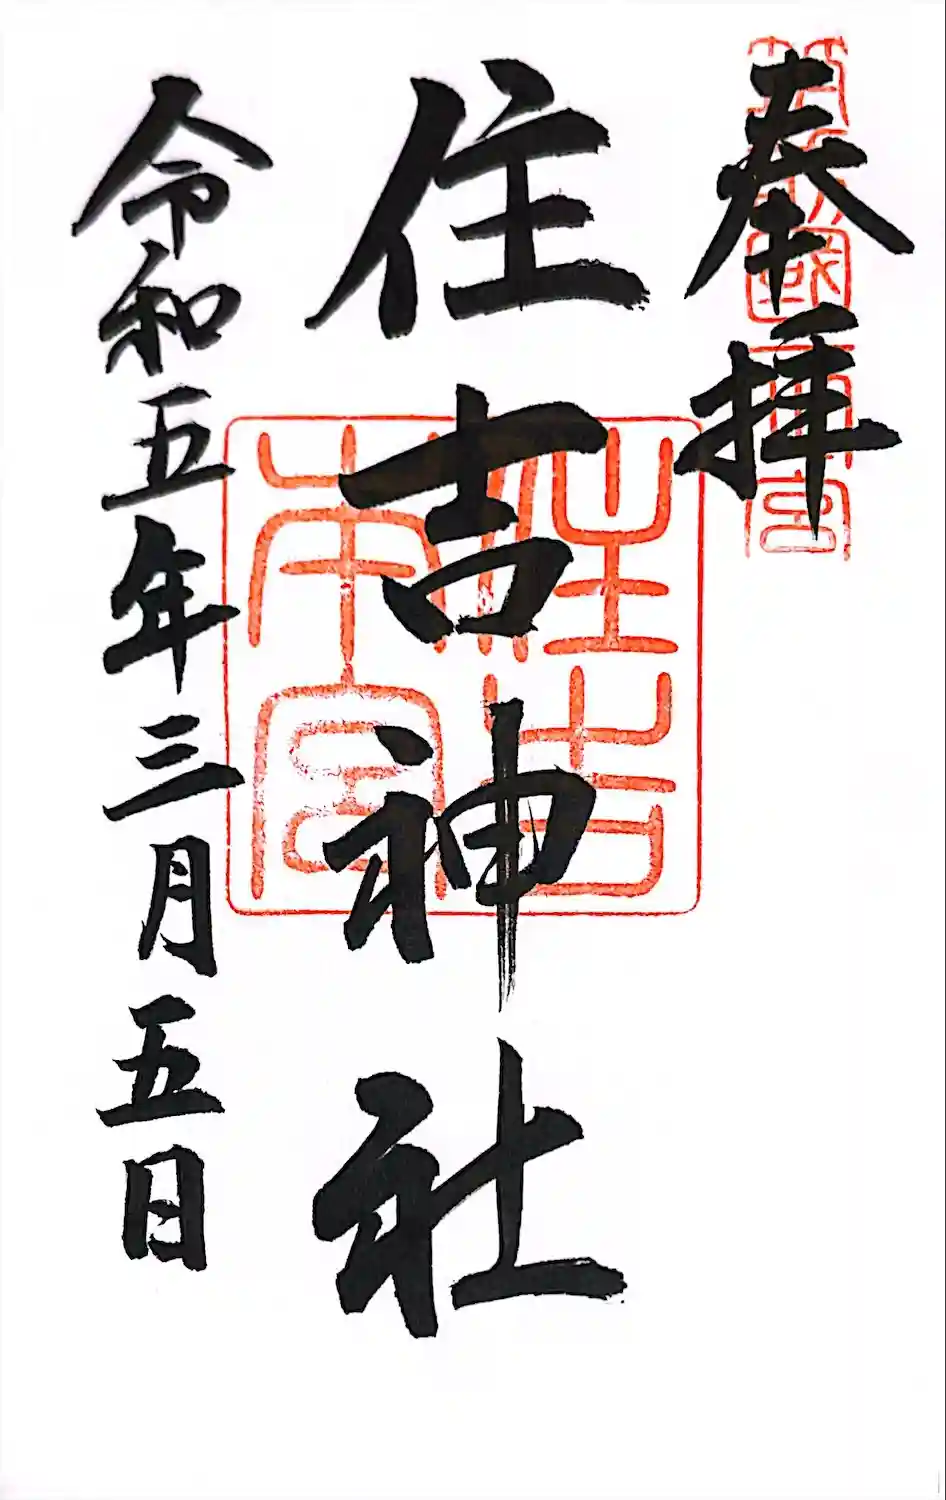 奉拝
住吉神社
住吉本宮
令和五年三月五日